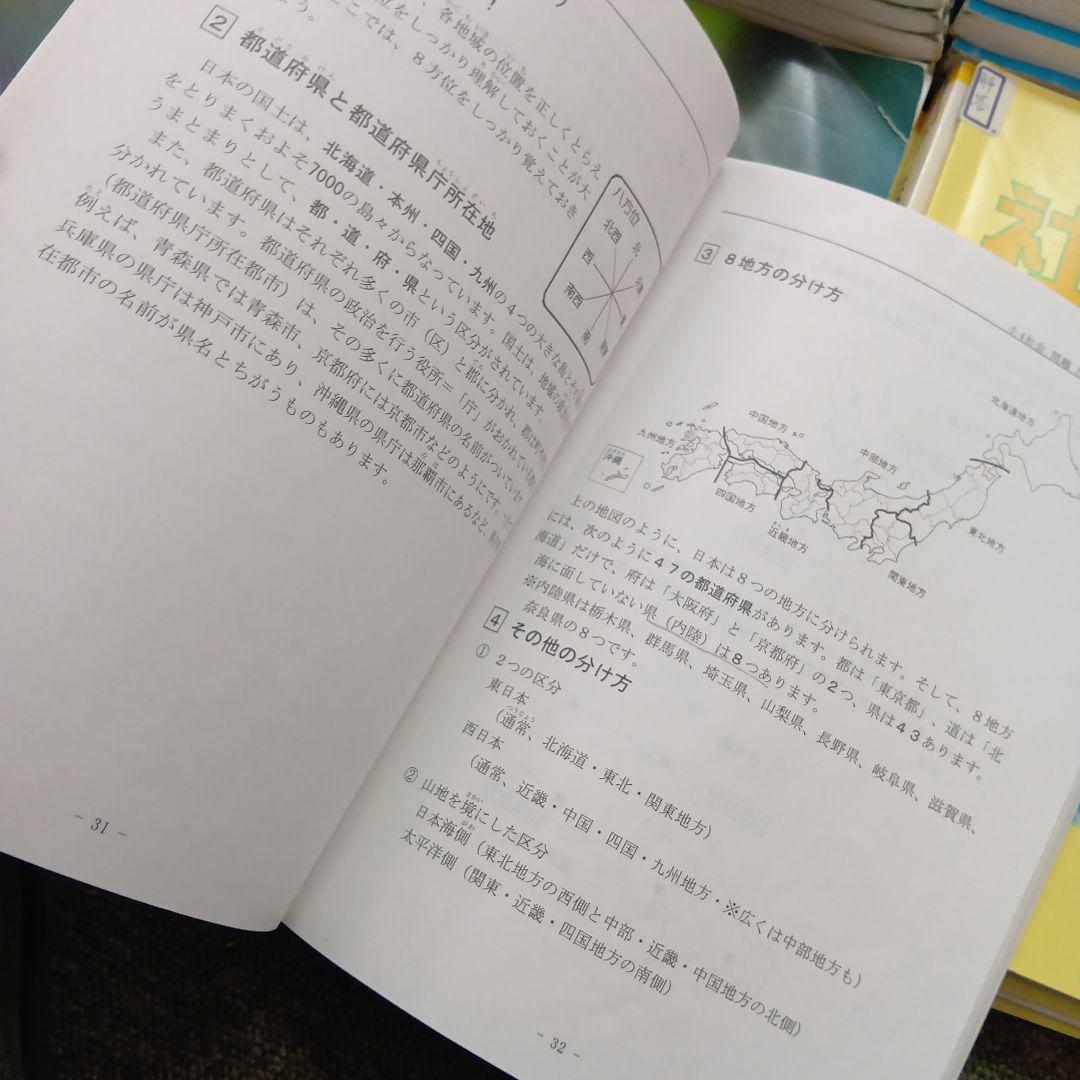 、各地域の位置を正しくとらえ
位をしっかり理解しておくことが大
ここでは、8方位をしっかり覚えておき
よう。
八方位
北西
北
西
南西
南
2 都道府県と都道府県庁所在地
日本の国土は、北海道・本州・四国・九州の4つの大きな島と
をとりまくおよそ7000の島々からなっています。国土は、地域の
うまとまりとして、都・道・府・県という区分がされています。
また、都道府県はそれぞれ多くの市(区)と郡に分かれ、郡は
分かれています。都道府県の政治を行う役所=「庁」がおかれている
(都道府県庁所在都市)は、その多くに都道府県の名前がついています
例えば、青森県では青森市、京都府には京都市などのようにです。
兵庫県の県庁は神戸市にあり、沖縄県の県庁は那覇市にあるなど、
在都市の名前が県名とちがうものもあります。
- 31 -
小4社会
3 8地方の分け方
北海道地方
中国地方
九州地方
中部地方
沖縄
四国地方
近畿地方
東北地方
関東地方
上の地図のように、日本は8つの地方に分けられます。そして、8地方
には、次のように47の都道府県があります。都は「東京都」、道は「北
海道」だけで、府は「大阪府」と「京都府」の2つ、県は43あります。
海に面していない県(内陸)は8つあります。
※内陸県は栃木県、群馬県、埼玉県、山梨県、長野県、岐阜県、滋賀県、
奈良県の8つです。
4 その他の分け方
① 2つの区分
東日本
(通常、北海道・東北・関東地方)
西日本
(通常、近畿・中国・四国・九州地方・※広くは中部地方も)
② 山地を境にした区分
日本海側(東北地方の西側と中部・近畿・中国地方の北側)
太平洋側(関東・近畿・四国地方の南側)
- 32 -